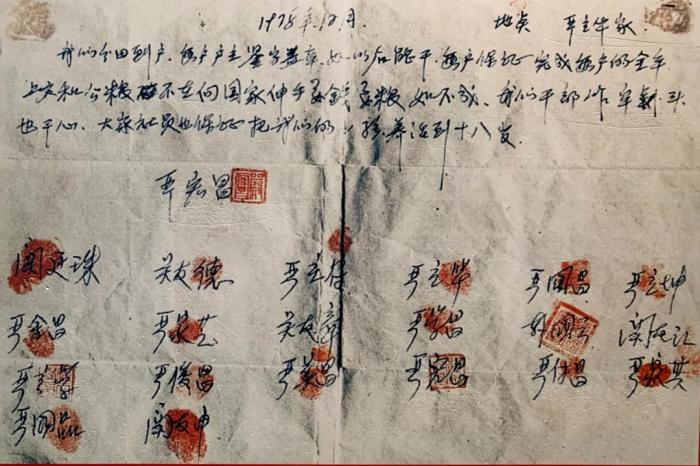 1978年12月. 地点 严立华家.
我们分田到户. 每户户主签字盖章. 如以后能干. 每户保证完成每户的全年
上交和公粮. 不在向国家伸手要钱要粮. 如不成. 我们干部作牢杀头
也干心. 大家社员也保证把我们的小孩养活到十八岁.
严宏昌
关廷珠 关友德 严立符 严立华 严国昌 严立坤
严金昌 严家芝 关友章 严学昌 韩国云 关友江
严立学 严俊昌 严美昌 严宏昌 严付昌 严家其
严国品 关友申